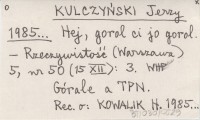 KULCZYŃSKI Jerzy
1985... Hej, goral ci jo goral.
- Rzeczywistość (Warszawa)
5, nr 50 (15 XII): 3.
Górale a TPN.
Rec. o: KOWALIK H. 1985...